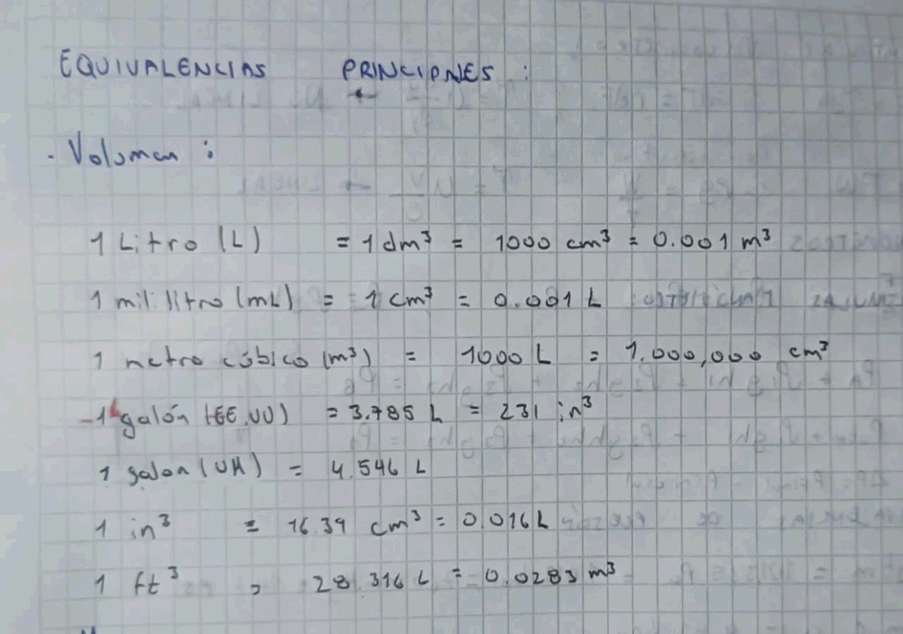 EQUIVALENCIAS PRINCIPALES :
- Volumen :
1 Litro (L) = 1 dm³ = 1000 cm³ = 0.001 m³
1 mililitro (mL) = 1 cm³ = 0.001 L
1 metro cúbico (m³) = 1000 L = 1.000,000 cm³
-1 galón (EE.UU) = 3.785 L = 231 in³
1 galon (UK) = 4.546 L
1 in³ = 16.39 cm³ = 0.016 L
1 ft³ = 28.316 L = 0.0283 m³